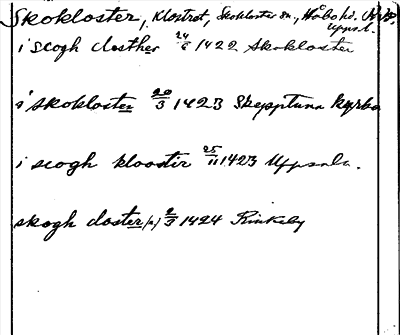 Skokloster, Klostret, Skokloster sn., Håbo hd.
Uppl.
i scogh closther 24/6 1422 Skokloster
i skokloster 20/3 1423 Skepptuna kyrka
i scogh klooster 25/11 1423 Uppsala.
skogh closter 2/3 1424 Rinkeby